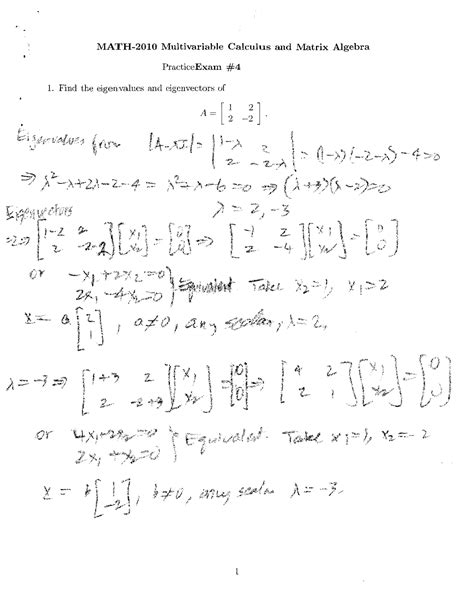 MATH-2010 Multivariable Calculus and Matrix Algebra
PracticeExam #4
1. Find the eigenvalues and eigenvectors of
A = [ 1 2 ; 2 −2 ].
Eigenvalues from |A-λI| = | 1-λ 2 ; 2 -2-λ | = (1-λ)(-2-λ)-4=0
⇒ λ²-λ+2λ-2-4 = λ²+λ-6=0 ⇒ (λ+3)(λ-2)=0
λ = 2, -3
Eigenvectors
λ=2⇒ [ 1-2 2 ; 2 -2-2 ] [ x1 ; x2 ] = [ 0 ; 0 ] ⇒ [ -1 2 ; 2 -4 ] [ x1 ; x2 ] = [ 0 ; 0 ]
or -x1+2x2=0
2x1-4x2=0 } Equivalent Take x2=1, x1=2
x = a [ 2 ; 1 ], a≠0, any scalar, λ=2,
λ=-3 ⇒ [ 1+3 2 ; 2 -2+3 ] [ x1 ; x2 ] = [ 0 ; 0 ] ⇒ [ 4 2 ; 2 1 ] [ x1 ; x2 ] = [ 0 ; 0 ]
or 4x1+2x2=0
2x1+x2=0 } Equivalent. Take x1=1, x2=-2
x = b [ 1 ; -2 ], b≠0, any scalar λ=-3.
1